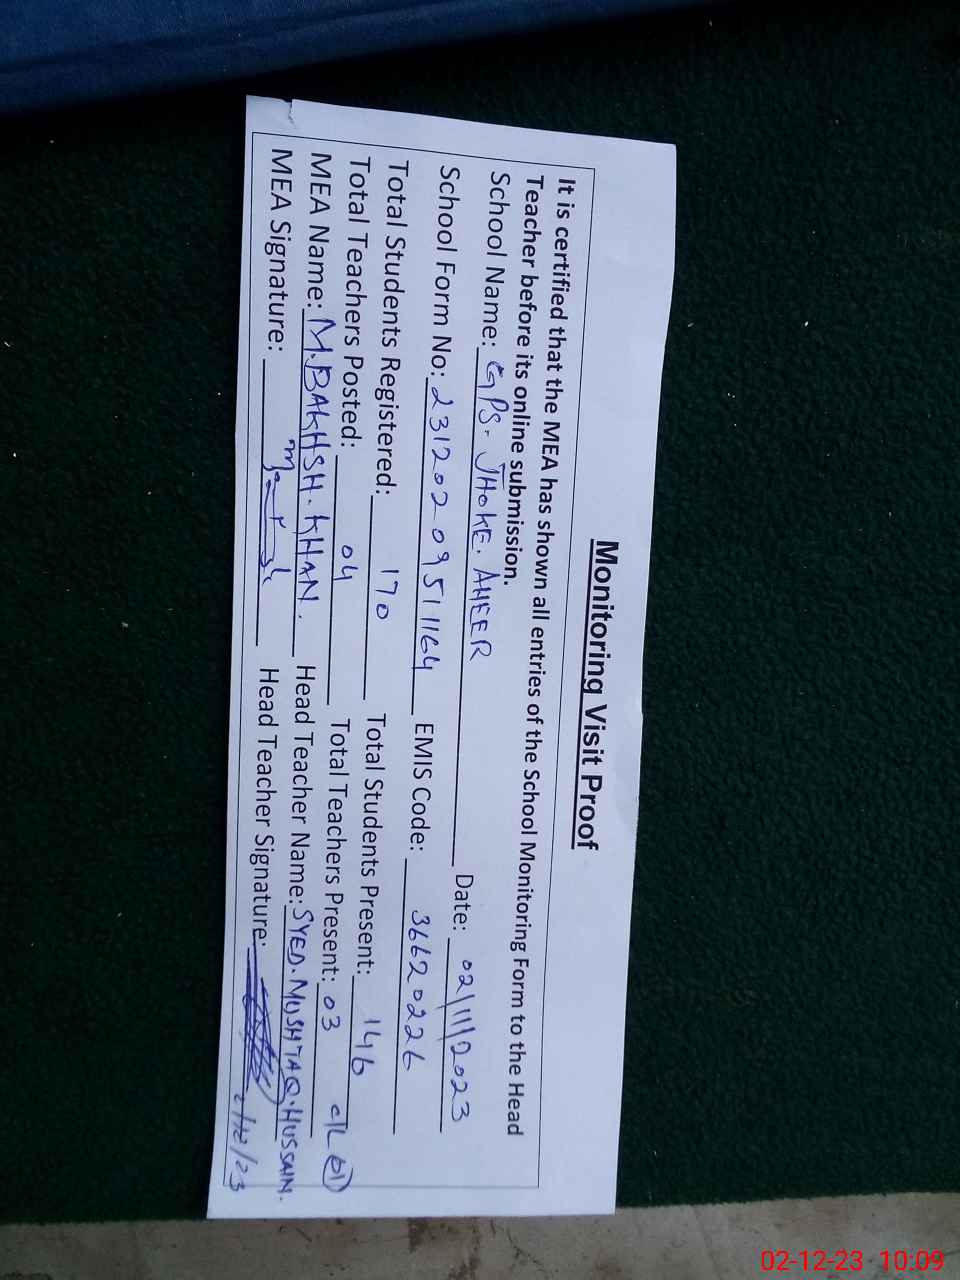 Monitoring Visit Proof
It is certified that the MEA has shown all entries of the School Monitoring Form to the Head
Teacher before its online submission.
School Name: GPS. JHOKE. AHEER Date: 02/11/2023
School Form No: 23120209511164 EMIS Code: 36620226
Total Students Registered: 170 Total Students Present: 146
Total Teachers Posted: 04 Total Teachers Present: 03 C/L 01
MEA Name: M.BAKHSH.KHAN. Head Teacher Name: SYED.MUSHTAQ.HUSSAIN.
MEA Signature: Head Teacher Signature: 2/12/23
02-12-23 10:09